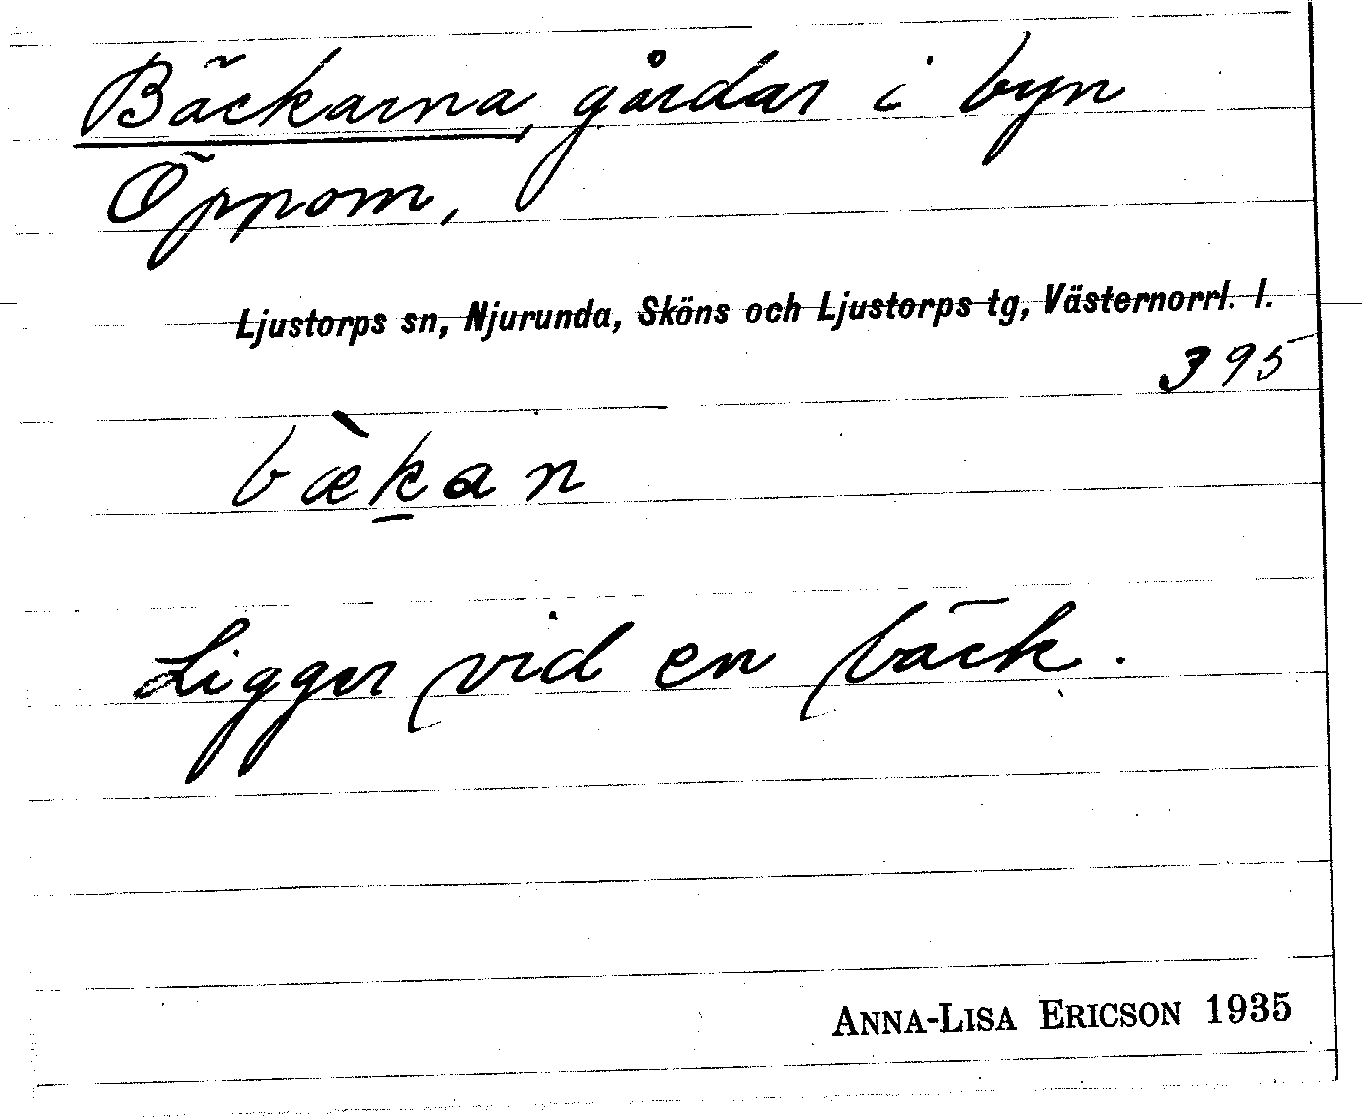 Bäckarna, gårdar i byn
Öppom,
Ljustorps sn, Njurunda, Sköns och Ljustorps tg, Västernorrl. l.
395
bæ̀k̠an
Ligger vid en bäck.
ANNA-LISA ERICSON 1935